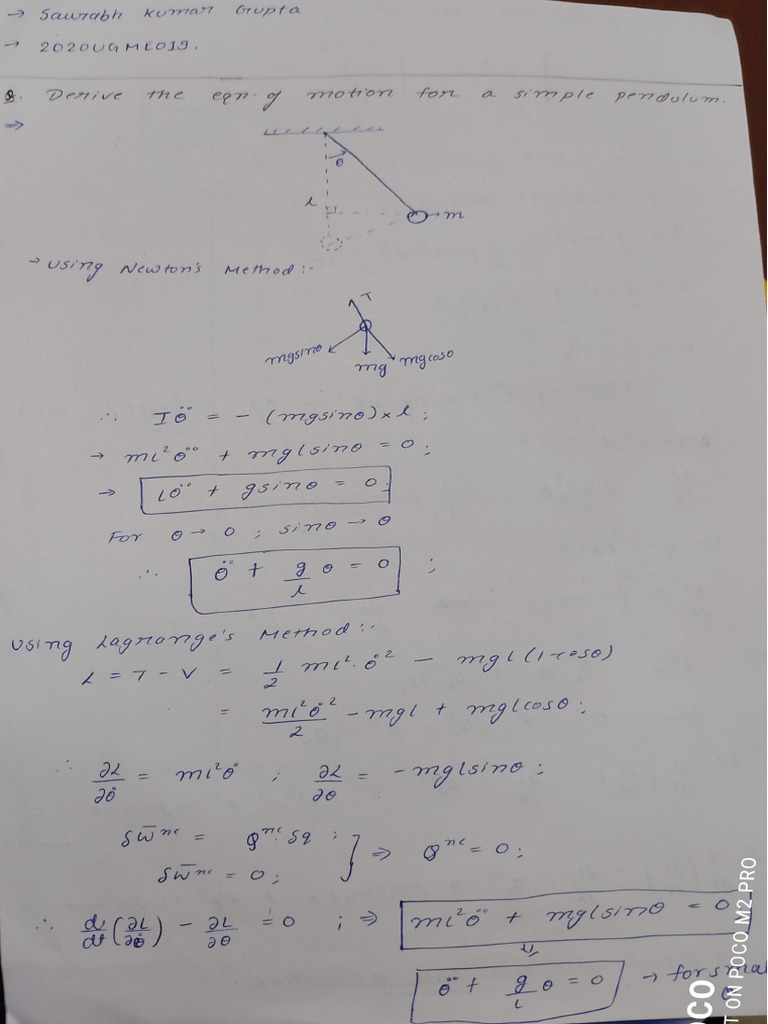 → Saurabh Kumar Gupta
→ 2020UGME019.
Q. Derive the eqn. of motion for a simple pendulum.
⇒
θ
l
m
→ Using Newton's Method :-
T
mgsinθ
mg
mgcosθ
∴ Iθ̈ = - (mgsinθ) × l ;
→ ml²θ̈ + mglsinθ = 0 ;
→ lθ̈ + gsinθ = 0 ;
For θ → 0 ; sinθ → θ
∴ θ̈ + g/l θ = 0 ;
Using Lagrange's Method :-
L = T - V = 1/2 ml². θ̇² - mgl (1-cosθ)
= ml²θ̇²/2 - mgl + mglcosθ ;
∴ ∂L/∂θ̇ = ml²θ̇ ; ∂L/∂θ = - mglsinθ ;
δW̄ⁿᶜ = Qⁿᶜ. δq ;
δW̄ⁿᶜ = 0 ; } ⇒ Qⁿᶜ = 0 ;
∴ d/dt (∂L/∂θ̇) - ∂L/∂θ = 0 ; ⇒ ml²θ̈ + mglsinθ = 0
⇓
θ̈ + g/l θ = 0 → for smal
θ
CO
T ON POCO M2 PRO